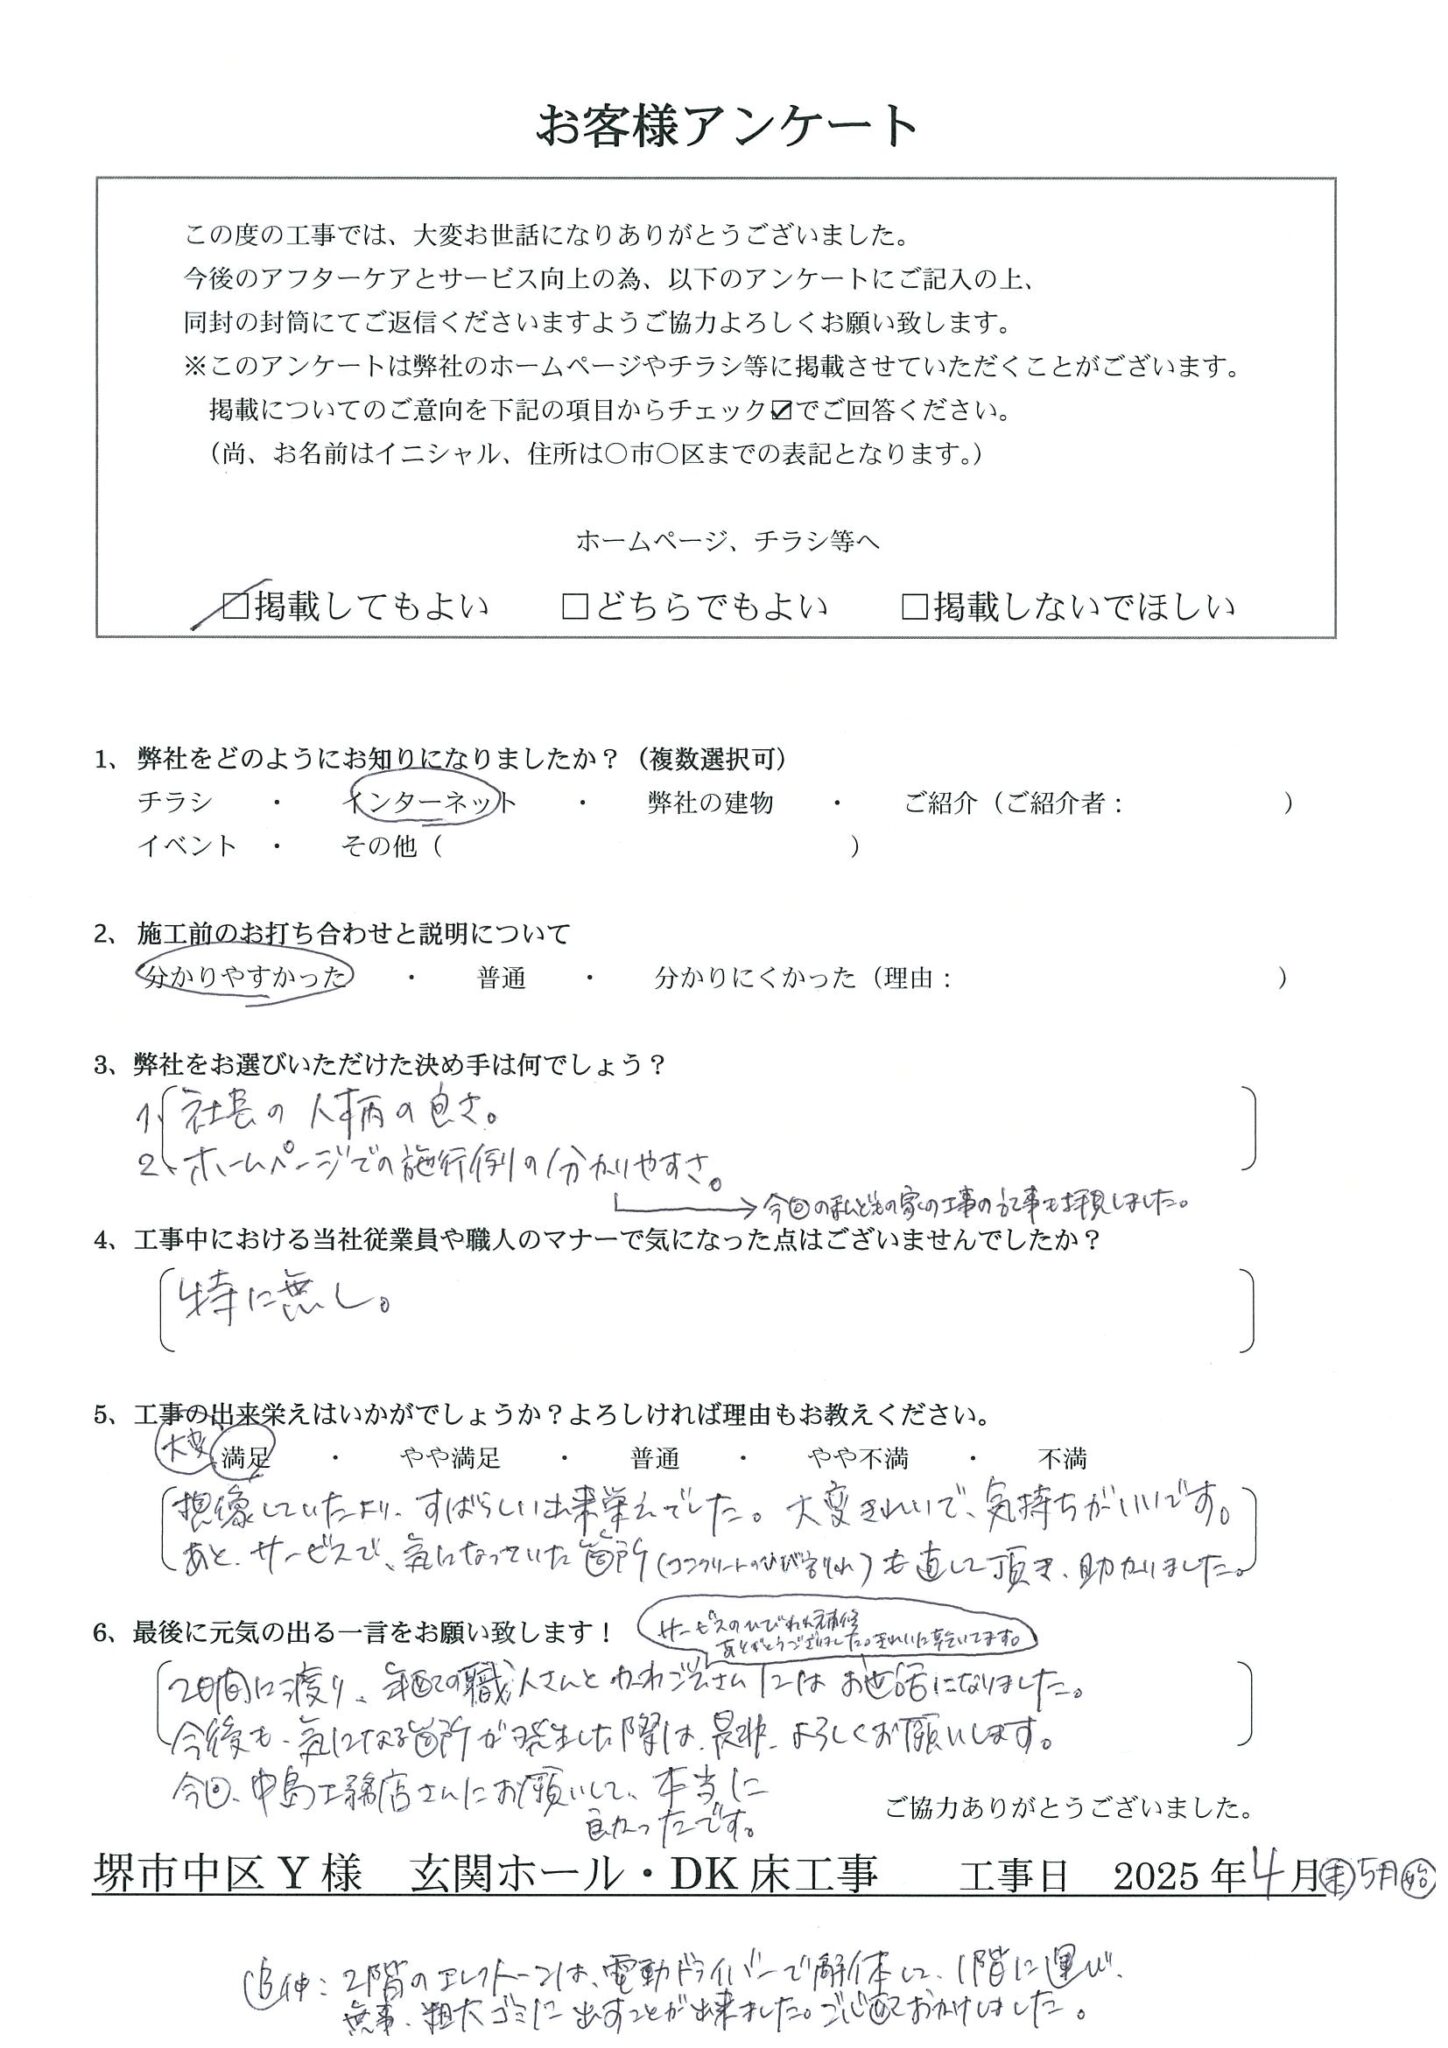 お客様アンケート
この度の工事では、大変お世話になりありがとうございました。
今後のアフターケアとサービス向上の為、以下のアンケートにご記入の上、
同封の封筒にてご返信くださいますようご協力よろしくお願い致します。
※このアンケートは弊社のホームページやチラシ等に掲載させていただくことがございます。
掲載についてのご意向を下記の項目からチェック☑でご回答ください。
(尚、お名前はイニシャル、住所は〇市〇区までの表記となります。)
ホームページ、チラシ等へ
☑掲載してもよい □どちらでもよい □掲載しないでほしい
1、弊社をどのようにお知りになりましたか？（複数選択可）
チラシ ・ インターネット ・ 弊社の建物 ・ ご紹介（ご紹介者： ）
イベント ・ その他（ ）
2、施工前のお打ち合わせと説明について
分かりやすかった ・ 普通 ・ 分かりにくかった（理由： ）
3、弊社をお選びいただけた決め手は何でしょう？
1、社長の人柄の良さ。
2、ホームページでの施行例の分かりやすさ。
→今回の私どもの家の工事の記事も拝見しました。
4、工事中における当社従業員や職人のマナーで気になった点はございませんでしたか？
特に無し。
5、工事の出来栄えはいかがでしょうか？よろしければ理由もお教えください。
大変 満足 ・ やや満足 ・ 普通 ・ やや不満 ・ 不満
想像していたより、すばらしい出来栄えでした。大変きれいで、気持ちがいいです。
あと、サービスで、気になっていた箇所(コンクリートのひび割れ)も直して頂き、助かりました。
6、最後に元気の出る一言をお願い致します！
サービスのひびわれ補修
ありがとうございました。きれいに乾いてます。
2日間に渡り、年配の職人さんと さんにはお世話になりました。
今後も、気になる箇所が発生した際は、是非、よろしくお願いします。
今回、中島工務店さんにお願いして、本当に
良かったです。
ご協力ありがとうございました。
堺市中区Y様 玄関ホール・DK床工事 工事日 2025年4月末5月始
追伸：2階のエレクトーンは、電動ドライバーで解体して、1階に運び、
無事、粗大ゴミに出すことが出来ました。ご心配おかけしました。